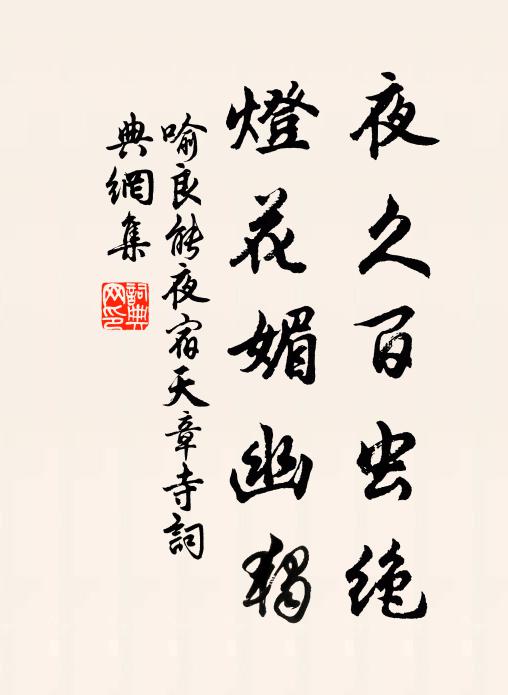 夜久百虫绝
燈花媚幽獨
喻良能夜宿天章寺詞
典網集
詞典網印